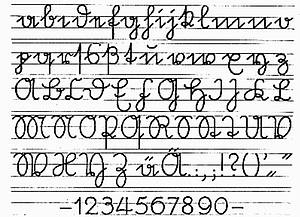 abcdefghijklmno
pqrſsßtuvwxyz
ABCDEFGHIJKL
MNOPQRSTUV
WXYZüÄ.:,;!?()'„"
-1234567890-